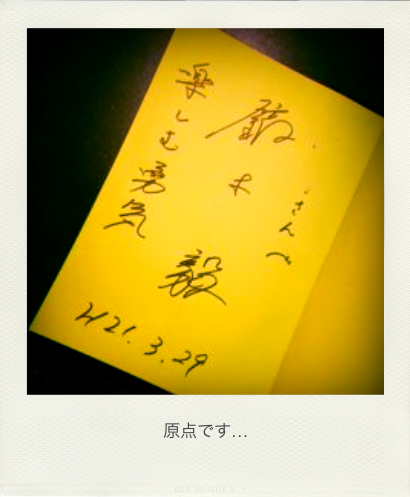 さんへ
鏑木 毅
楽しむ勇気
H21.3.29
原点です...